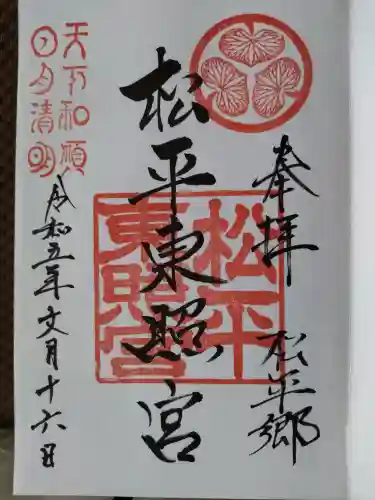 奉拝
松平郷
松平東照宮
松平
東照宮
天下和順
日月清明
令和五年文月十六日